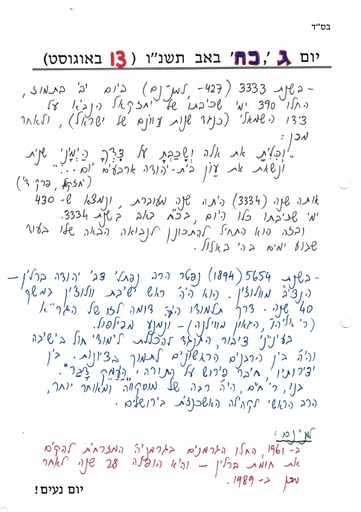 בס"ד
יום ג', כח' באב תשנ"ו (13 באוגוסט)
- בשנת 3333 (427- למנינם) ביום יב' בתמוז,
החלו 390 ימי שכיבתו של יחזקאל הנביא על
צידו השמאלי (כנגד שנות עוונם של ישראל), ולאחר
מכן:
"וכלית את אלה ושכבת על צדך הימני שנית
ונשאת את עון בית-יהודה ארבעים יום..."
(יחזקאל, פרק ד')
אותה שנה (3334) היתה שנה מעוברת, ונמצא ש-430
ימי שכיבתו כלו היום, בכ"ח באב בשנת 3334.
ובזה הוא התחיל להתכונן לנבואה הבאה שלו בעוד
שבוע ימים בה' באלול.
- בשנת 5654 (1894) נפטר הרב נפתלי צבי יהודה ברלין -
הנצי"ב מוולוז'ין. הוא היה ראש ישיבת וולוז'ין במשך
40 שנה. דרך תלמודו היתה דומה לזו של הגר"א
(ר' אליהו, הגאון מווילנה) - ונמנע מפילפול.
בעיניני ציבור, התנגד להכללת לימודי חול בישיבה
והיה בין הרבנים הראשונים לתמוך בציונות. בין
יצירותיו, חיבר פירוש על התורה, "העמק דבר".
בנו, ר' חיים, היה רבה של מוסקווה ומאוחר יותר,
הרב הראשי לקהילה האשכנזית בירושלים.
למנינם:
ב-1961, החלו הגרמנים בגרמניה המזרחית להקים
את חומת ברלין - והיא הופילה 28 שנה לאחר
מכן ב-1989.
יום נעים!